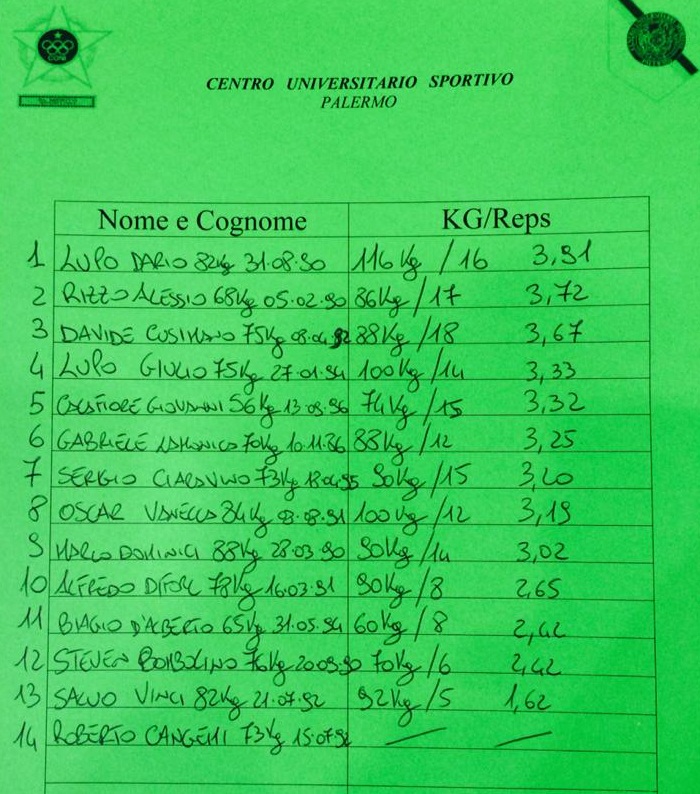 CONI
CENTRO UNIVERSITARIO SPORTIVO
PALERMO
Nome e Cognome KG/Reps
1 LUPO DARIO 82kg 31.08.90 116 Kg / 16 3,91
2 RIZZO ALESSIO 68Kg 05.02.90 86Kg / 17 3,72
3 DAVIDE CUSIMANO 75Kg 88Kg / 18 3,67
4 LUPO GIULIO 75Kg 27.01.94 100Kg / 14 3,33
5 GIOVANNI 56Kg 74Kg / 15 3,32
6 GABRIELE 70Kg 10.11.86 88Kg / 12 3,25
7 SERGIO 73Kg 90Kg / 15 3,20
8 OSCAR 84Kg 100Kg / 12 3,19
9 MARCO DOMINICI 88Kg 28.03.90 90Kg / 14 3,02
10 ALFREDO 78Kg 16.03.91 90Kg / 8 2,65
11 BIAGIO D'ALBERTO 65Kg 31.05.94 60Kg / 8 2,42
12 STEVEN 76Kg 70Kg / 6 2,42
13 SALVO VINCI 82Kg 21.07.92 92Kg / 5 1,62
14 ROBERTO CANGEMI 73Kg 15.07.92